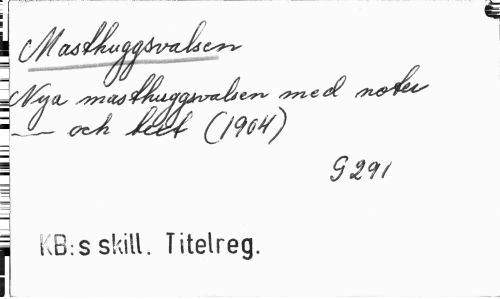 Masthuggsvalsen
Nya masthuggsvalsen med noter
— och text (1904)
G 291
KB:s skill. Titelreg.